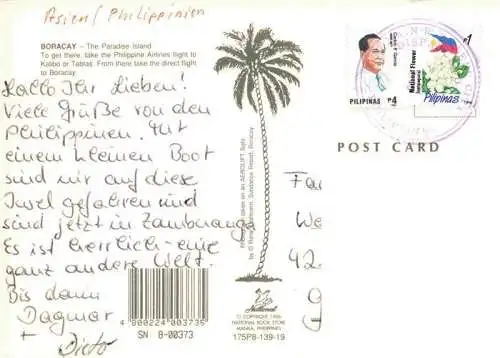 Asien/Philippinien
BORACAY – The Paradise Island
To get there, take the Philippine Airlines flight to
Kalibo or Tablas. From there take the direct flight
to Boracay.
Hallo Ihr Lieben!
Viele Grüße von den
Philippinen. Mit
einem kleinen Boot
sind wir auf diese
Insel gefahren und
sind jetzt in Zamboanga
Es ist herrlich – eine
ganz andere Welt.
Bis dann
Dagmar
+
Dieto
taken on an AEROLIFT flight
Resort, Boracay
4 800224 003736
SN 8-00373
National
© COPYRIGHT
NATIONAL BOOK STORE
175P8-139-19
PILIPINAS P4
P1
National Flower
Pilipinas
POST CARD
Fa
We
42